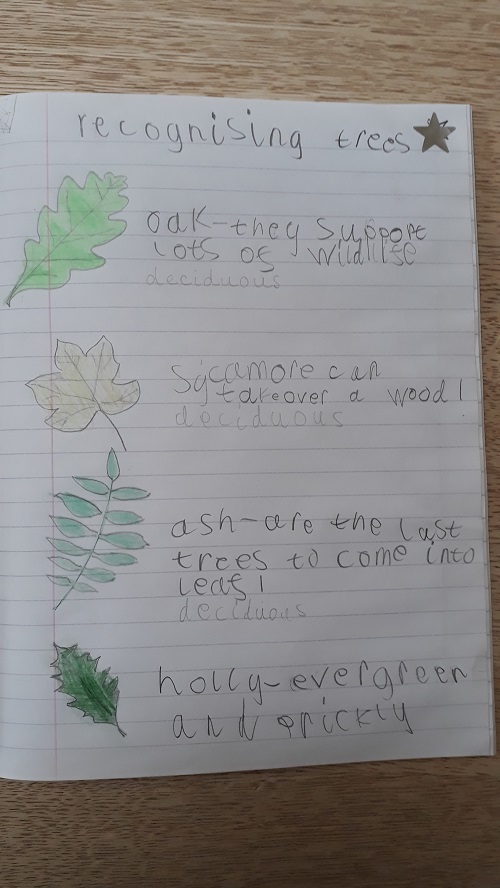 recognising trees
oak-they support
lots of wildlife
deciduous
Sycamore can
takeover a wood!
deciduous
ash-are the last
trees to come into
leaf!
deciduous
holly-evergreen
and prickly